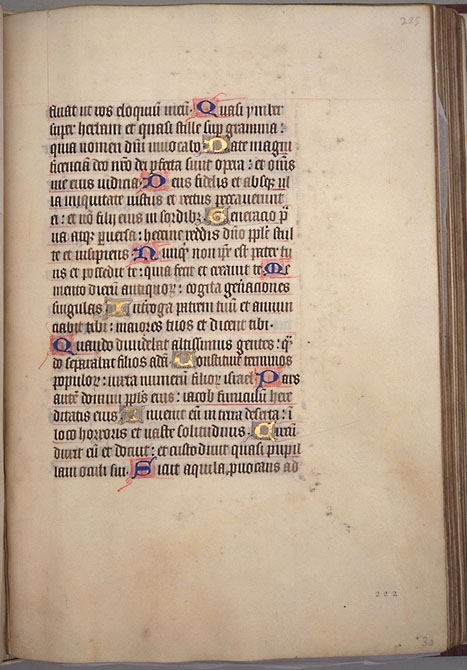 225
fluat ut ros eloquiū meū. Quasi ymber
super herbam et quasi stille sup gramina:
quia nomen dñi inuocabo. Date magni
ficenciam deo nr̄o dei pfecta sunt opera: et om̄s
uie eius iudicia. Deus fidelis et absqꝫ ul
la iniquitate iustus et rectus peccauerunt
ei: et nō filij eius in sordibꝫ. Generacō p̄
ua atqꝫ puersa: heccine reddis dño pple stul
te et insipiens. Nunqͥd non ipe est pater tu
us et possedit te: quia fecit et creauit te. Me
mento dierū antiquoꝝ: cogita gn̄aciones
singulas. Interroga patrem tuū et annun
ciabit tibi: maiores tuos et dicent tibi.
Quando diuidebat altissimus gentes: qn̄
do separabat filios adā. Constituit terminos
populoꝝ: iuxta numerū filioꝝ israel. Pars
autē domini ppl̄s eius: iacob funiculus here
ditatis eius. Inuenit eū in terra deserta: ī
loco horroris et uaste solitudinis. Circū
duxit eū et docuit: et custodiuit quasi pupil
lam oculi sui. Sicut aquila puocans ad
222
30